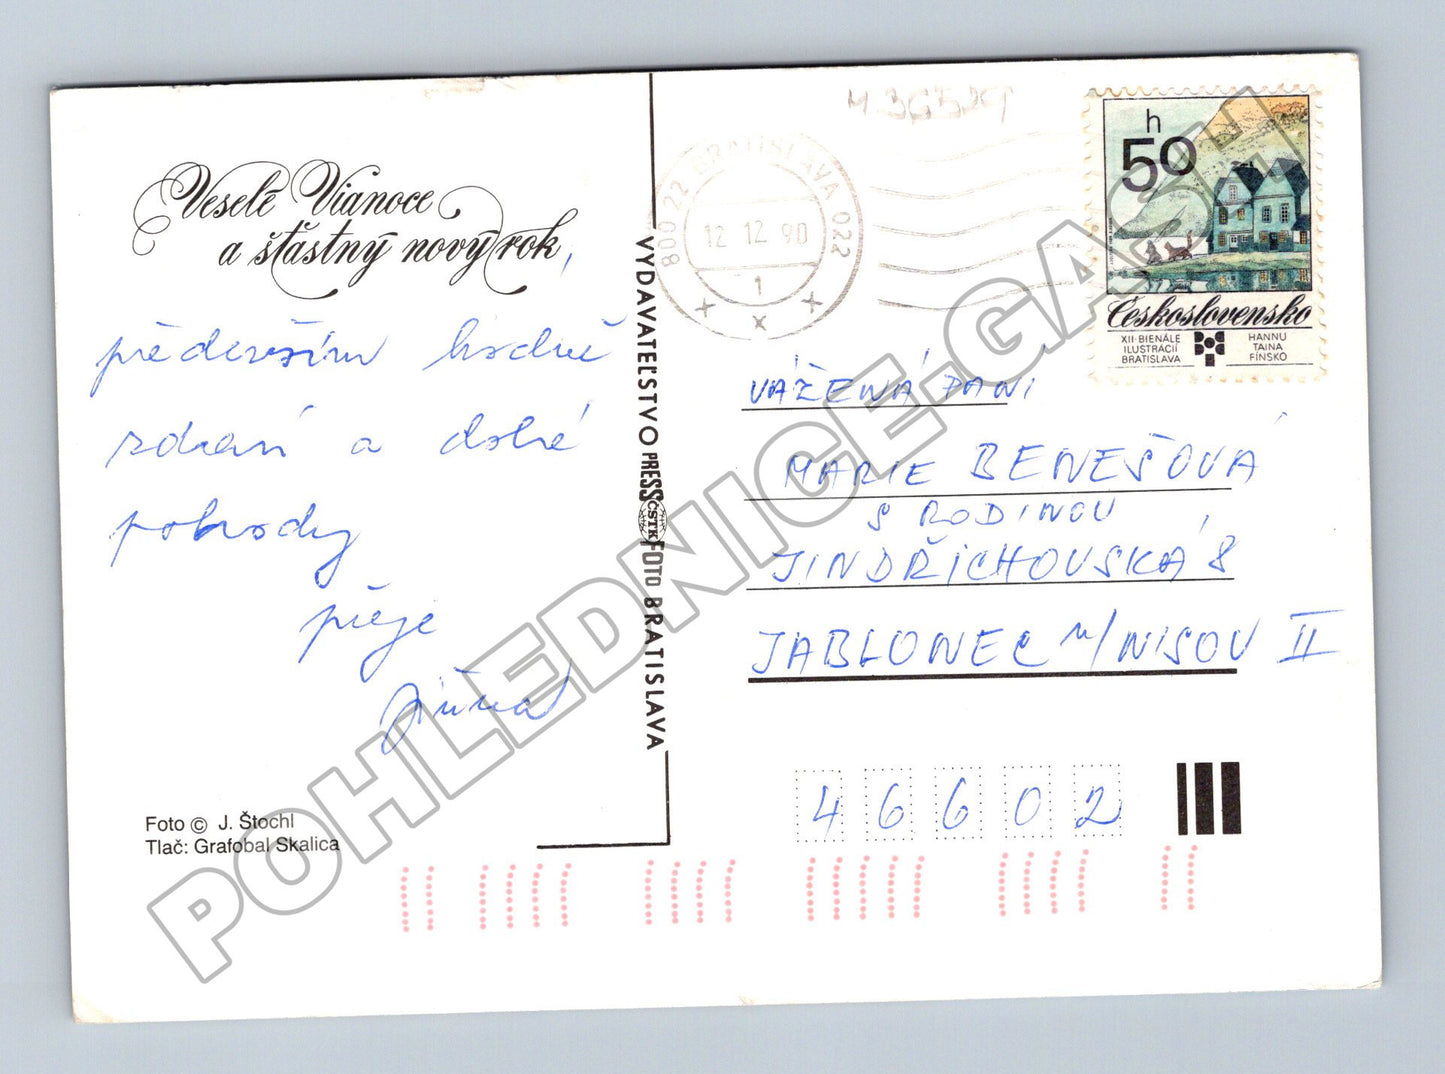 Veselé Vianoce
a šťastný nový rok,
především hodně
zdraví a dobré
pohody
přeje
Jiřina
Foto © J. Štochl
Tlač: Grafobal Skalica
VYDAVATEĽSTVO PRESSFOTO BRATISLAVA
ČSTK
800 22 BRATISLAVA 022
12 12 90
1
x
h
50
Československo
XII. BIENÁLE
ILUSTRÁCIÍ
BRATISLAVA
HANNU
TAINA
FÍNSKO
VÁŽENÁ PANÍ
MARIE BENEŠOVÁ
S RODINOU
JINDŘICHOVSKÁ 8
JABLONEC n/NISOU II
46602
POHLEDNICE-GASI